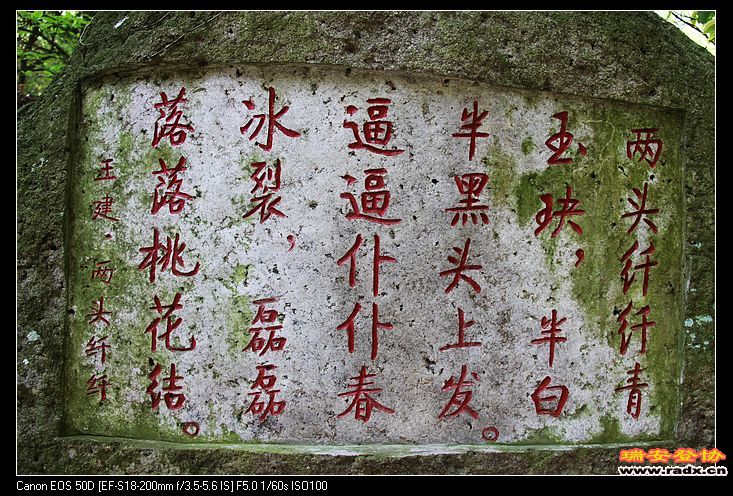 两头纤纤青
玉玦，半白
半黑头上发。
逼逼仆仆春
冰裂，磊磊
落落桃花结。
王建·两头纤纤
瑞安登协
www.radx.cn
Canon EOS 50D [EF-S18-200mm f/3.5-5.6 IS] F5.0 1/60s ISO100